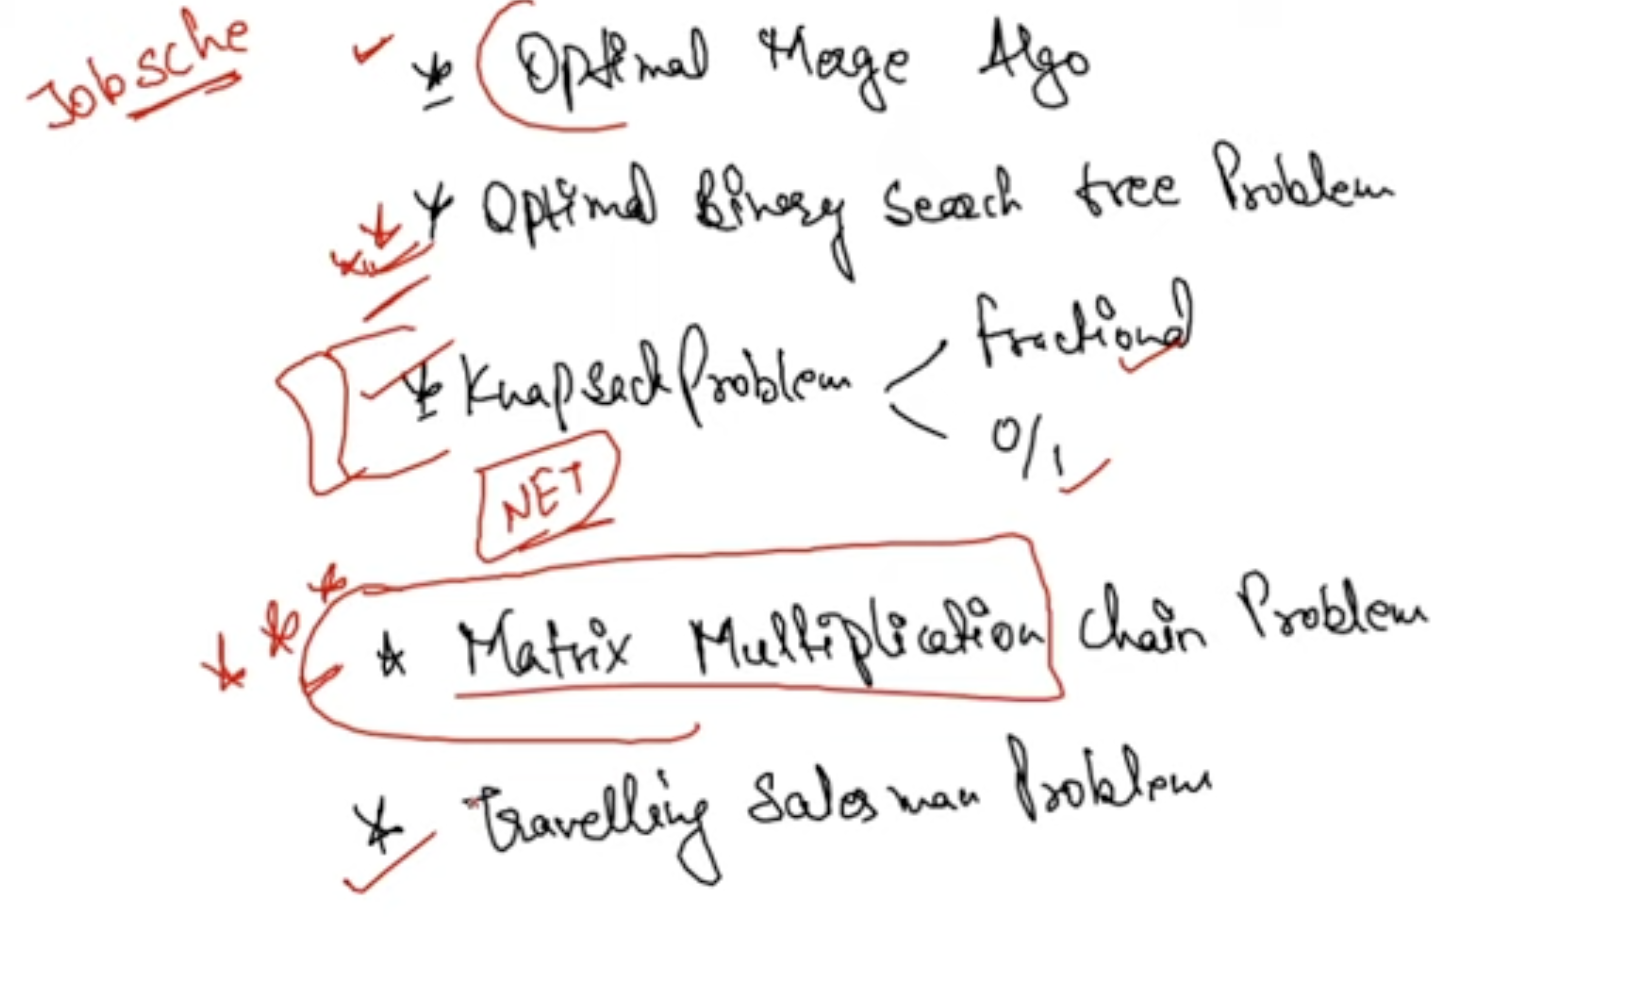 Jobsche
* Optimal Merge Algo
* Optimal Binary Search tree Problem
* Knapsack Problem < fractional
0/1
NET
* Matrix Multiplication Chain Problem
* Travelling Salesman Problem